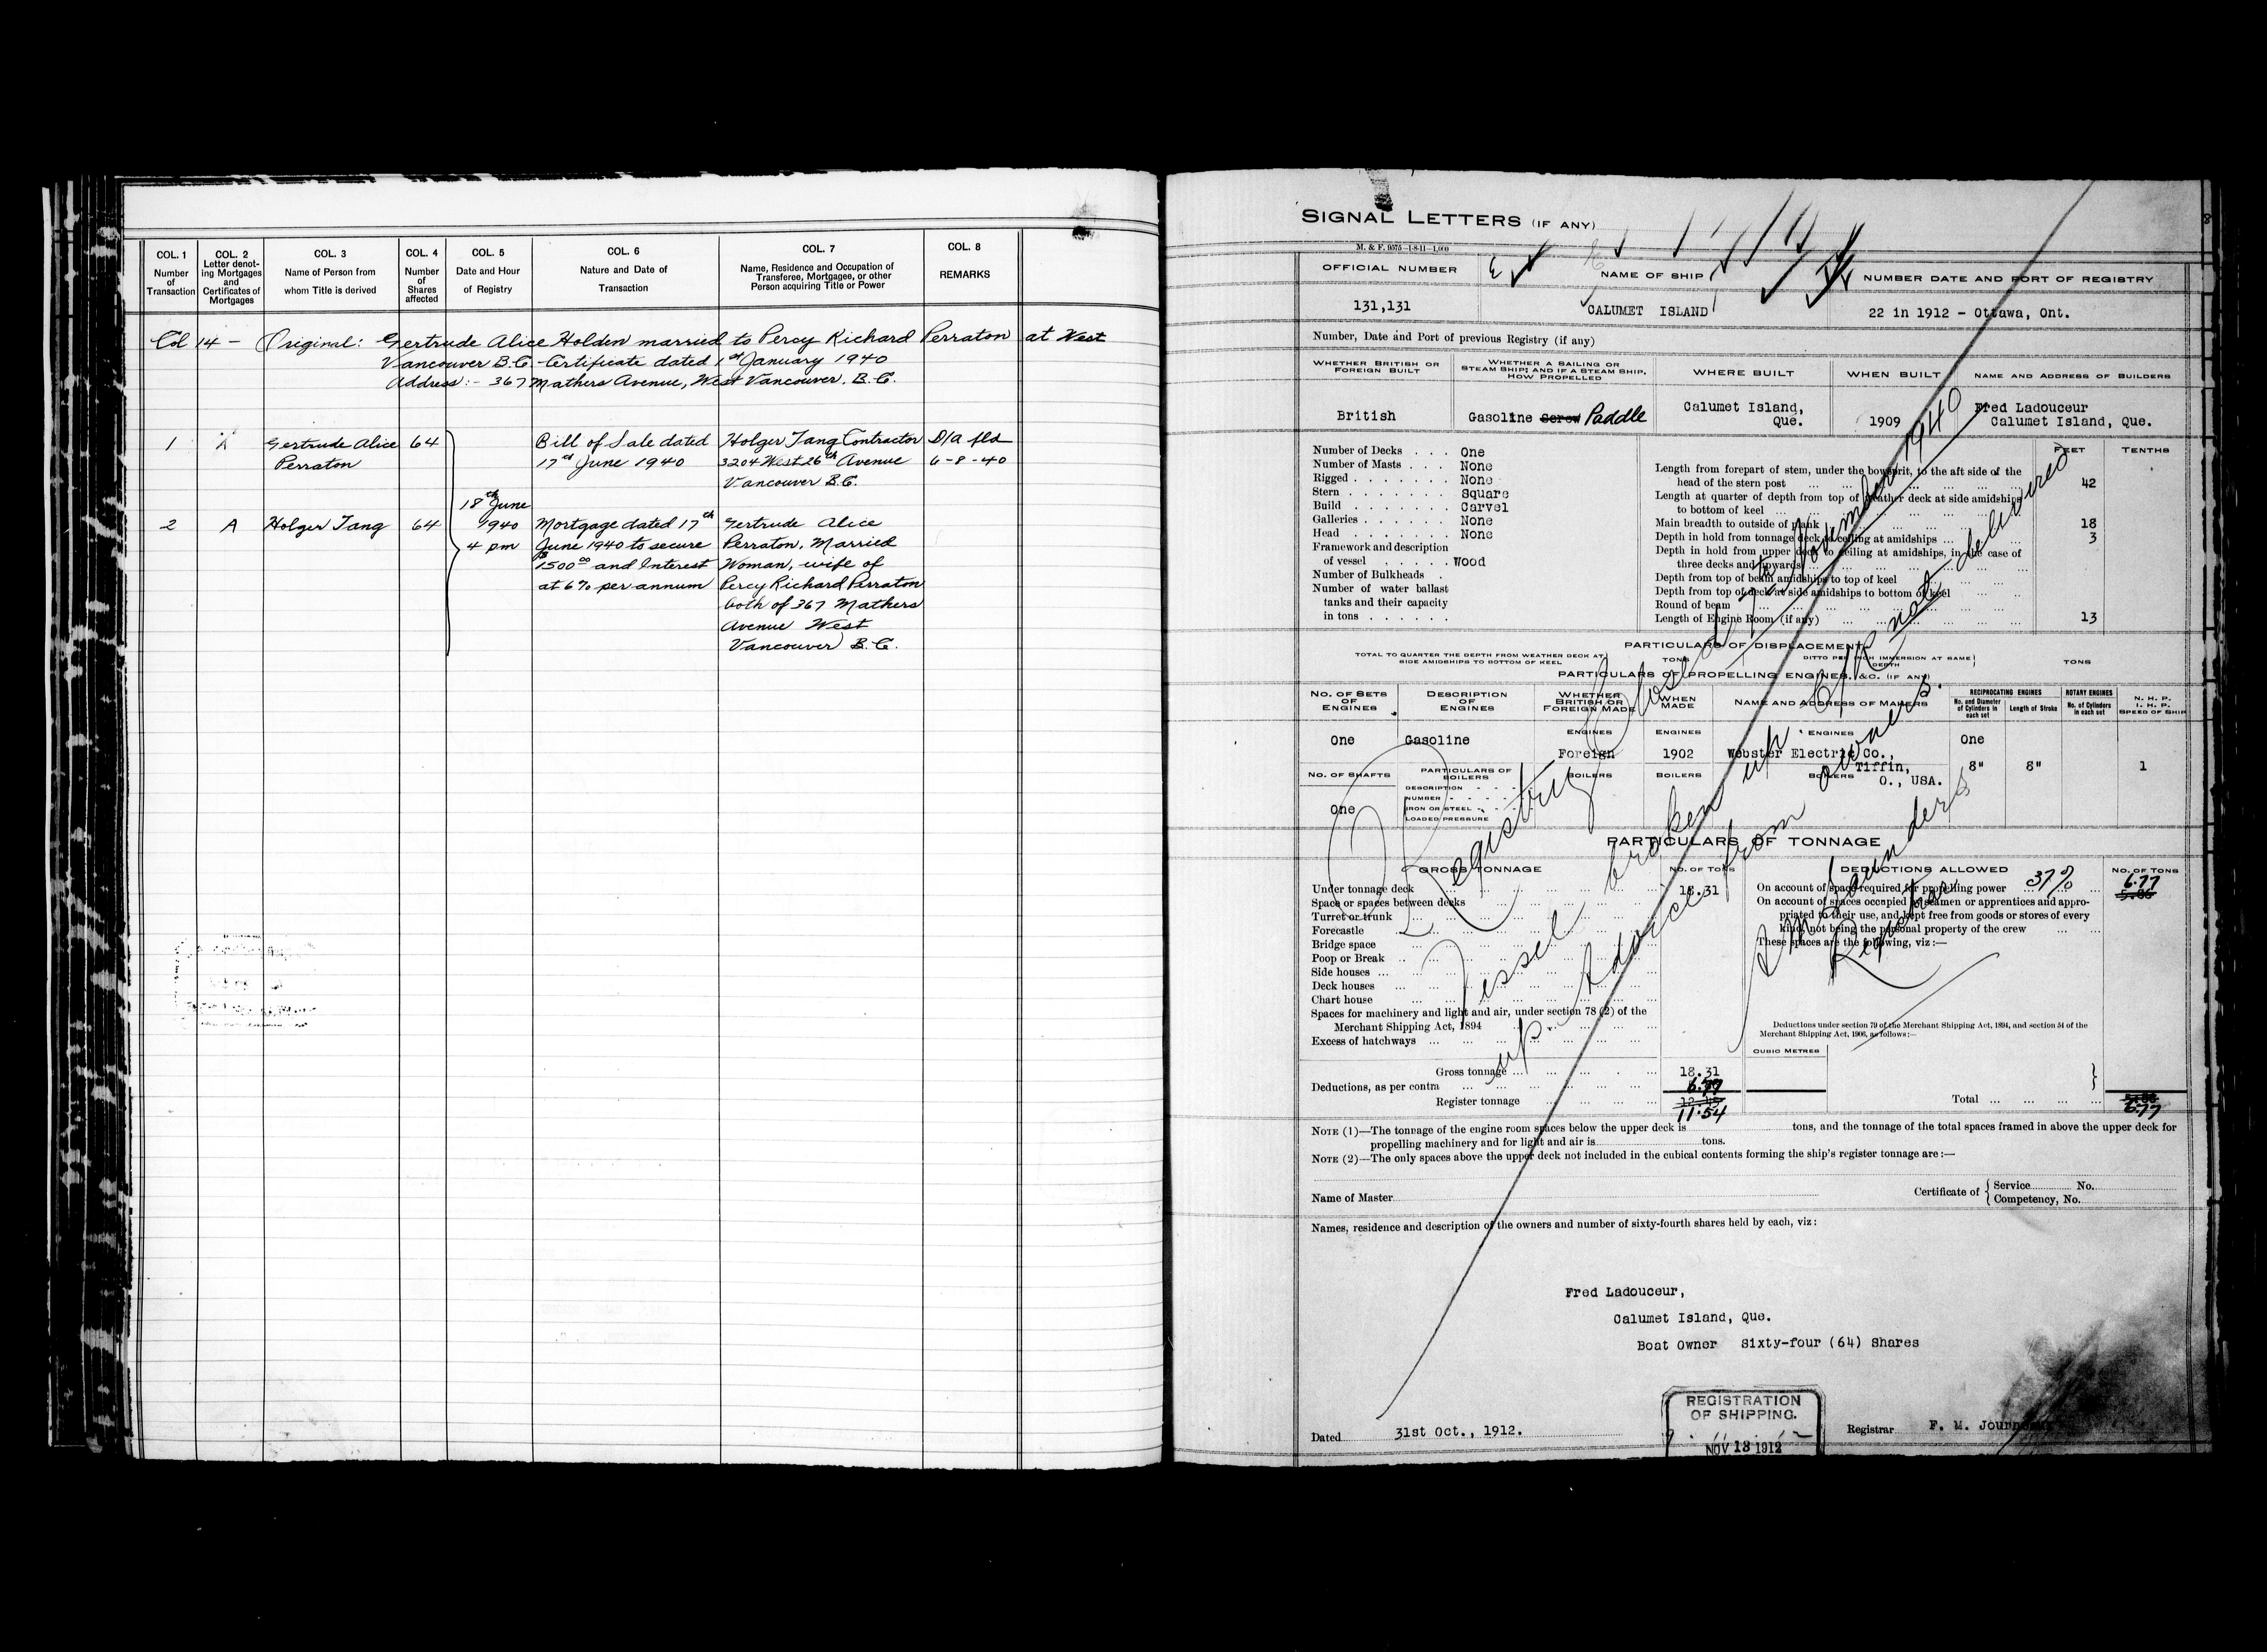 COL. 1 Number of Transaction
COL. 2 Letter denoting Mortgages and Certificates of Mortgages
COL. 3 Name of Person from whom Title is derived
COL. 4 Number of Shares affected
COL. 5 Date and Hour of Registry
COL. 6 Nature and Date of Transaction
COL. 7 Name, Residence and Occupation of Transferee, Mortgagee, or other Person acquiring Title or Power
COL. 8 REMARKS
Col 14 - Original: Gertrude Alice Holden married to Percy Richard Perraton at West
Vancouver B.C. - Certificate dated 1st January 1940
Address:- 367 Mathers Avenue, West Vancouver, B.C.
1 Gertrude Alice 64 Bill of Sale dated Holger Tang Contractor D/a fld
Perraton 17th June 1940 3204 West 26th Avenue 6-8-40
Vancouver B.C.
18th June
2 A Holger Tang 64 1940 Mortgage dated 17th Gertrude Alice
4 pm June 1940 to secure Perraton, Married
$1500.00 and Interest Woman, wife of
at 6% per annum Percy Richard Perraton
both of 367 Mathers
Avenue West
Vancouver B.C.
SIGNAL LETTERS (IF ANY)
M. & F. 9575-1-8-11-1,000
OFFICIAL NUMBER NAME OF SHIP NUMBER DATE AND PORT OF REGISTRY
131,131 CALUMET ISLAND 22 in 1912 - Ottawa, Ont.
Number, Date and Port of previous Registry (if any)
WHETHER BRITISH OR FOREIGN BUILT
WHETHER A SAILING OR STEAM SHIP; AND IF A STEAM SHIP, HOW PROPELLED
WHERE BUILT WHEN BUILT NAME AND ADDRESS OF BUILDERS
British Gasoline Screw Paddle Calumet Island, Que. 1909 Fred Ladouceur
Calumet Island, Que.
FEET TENTHS
Number of Decks One
Number of Masts None
Rigged None
Stern Square
Build Carvel
Galleries None
Head None
Framework and description
of vessel Wood
Number of Bulkheads
Number of water ballast
tanks and their capacity
in tons
Length from forepart of stem, under the bowsprit, to the aft side of the
head of the stern post 42
Length at quarter of depth from top of weather deck at side amidships
to bottom of keel
Main breadth to outside of plank 18
Depth in hold from tonnage deck to ceiling at amidships 3
Depth in hold from upper deck to ceiling at amidships, in the case of
three decks and upwards
Depth from top of beam amidships to top of keel
Depth from top of deck at side amidships to bottom of keel
Round of beam
Length of Engine Room (if any) 13
PARTICULARS OF DISPLACEMENT
TOTAL TO QUARTER THE DEPTH FROM WEATHER DECK AT SIDE AMIDSHIPS TO BOTTOM OF KEEL TONS DITTO PER INCH IMMERSION AT SAME DEPTH TONS
PARTICULARS OF PROPELLING ENGINES, &C. (IF ANY)
NO. OF SETS OF ENGINES
DESCRIPTION OF ENGINES
WHETHER BRITISH OR FOREIGN MADE
WHEN MADE
NAME AND ADDRESS OF MAKERS
RECIPROCATING ENGINES
No. and Diameter of Cylinders in each set
Length of Stroke
ROTARY ENGINES
No. of Cylinders in each set
N. H. P.
I. H. P.
SPEED OF SHIP
ENGINES ENGINES ENGINES
One Gasoline Foreign 1902 Webster Electric Co.,
Tiffin,
O., USA.
One
8" 8" 1
NO. OF SHAFTS PARTICULARS OF BOILERS BOILERS BOILERS BOILERS
DESCRIPTION
NUMBER
One IRON OR STEEL
LOADED PRESSURE
PARTICULARS OF TONNAGE
GROSS TONNAGE NO. OF TONS DEDUCTIONS ALLOWED NO. OF TONS
Under tonnage deck 18.31
Space or spaces between decks
Turret or trunk
Forecastle
Bridge space
Poop or Break
Side houses
Deck houses
Chart house
Spaces for machinery and light and air, under section 78 (2) of the
Merchant Shipping Act, 1894
Excess of hatchways
Gross tonnage 18.31
Deductions, as per contra 6.77
Register tonnage 11.54
On account of space required for propelling power 37% 6.77
On account of spaces occupied by seamen or apprentices and appro-
priated to their use, and kept free from goods or stores of every
kind, not being the personal property of the crew
These spaces are the following, viz:—
Deductions under section 79 of the Merchant Shipping Act, 1894, and section 54 of the
Merchant Shipping Act, 1906, as follows:—
CUBIC METRES
Total 6.77
Registry Closed 7th November 1940
Vessel broken up. C/R not delivered
up. Advice from owners.
Saunders
Registrar
NOTE (1)—The tonnage of the engine room spaces below the upper deck is tons, and the tonnage of the total spaces framed in above the upper deck for
propelling machinery and for light and air is tons.
NOTE (2)—The only spaces above the upper deck not included in the cubical contents forming the ship's register tonnage are:—
Name of Master
Certificate of { Service No.
Competency, No.
Names, residence and description of the owners and number of sixty-fourth shares held by each, viz:
Fred Ladouceur,
Calumet Island, Que.
Boat Owner Sixty-four (64) Shares
REGISTRATION
OF SHIPPING.
NOV 13 1912
Dated 31st Oct., 1912.
Registrar F. M.